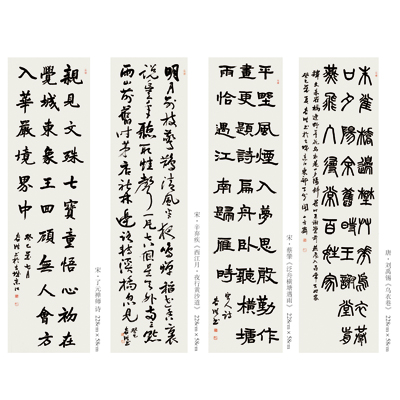 朱雀橋邊野草花烏衣巷
口夕陽斜舊時王謝堂前
燕飛入尋常百姓家
唐·刘禹锡《乌衣巷》 228cm×58cm
平野風煙入夢思
畫更題詩扁舟臥聽橫塘
雨恰遇江南歸雁時
宋·蔡肇《泛舟横塘遇雨》 228cm×58cm
明月別枝驚鵲清風半夜鳴蟬稻花香裏
說豐年聽取蛙聲一片七八個星天外兩三點
雨山前舊時茅店社林邊路轉溪橋忽見
宋·辛弃疾《西江月·夜行黄沙道》 228cm×58cm
親見文殊七寶童悟心初在
覺城東象王回顧無人會方
入華嚴境界中
宋·了元禅师 诗 228cm×58cm